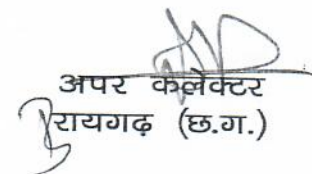 अपर कलेक्टर
रायगढ़ (छ.ग.)